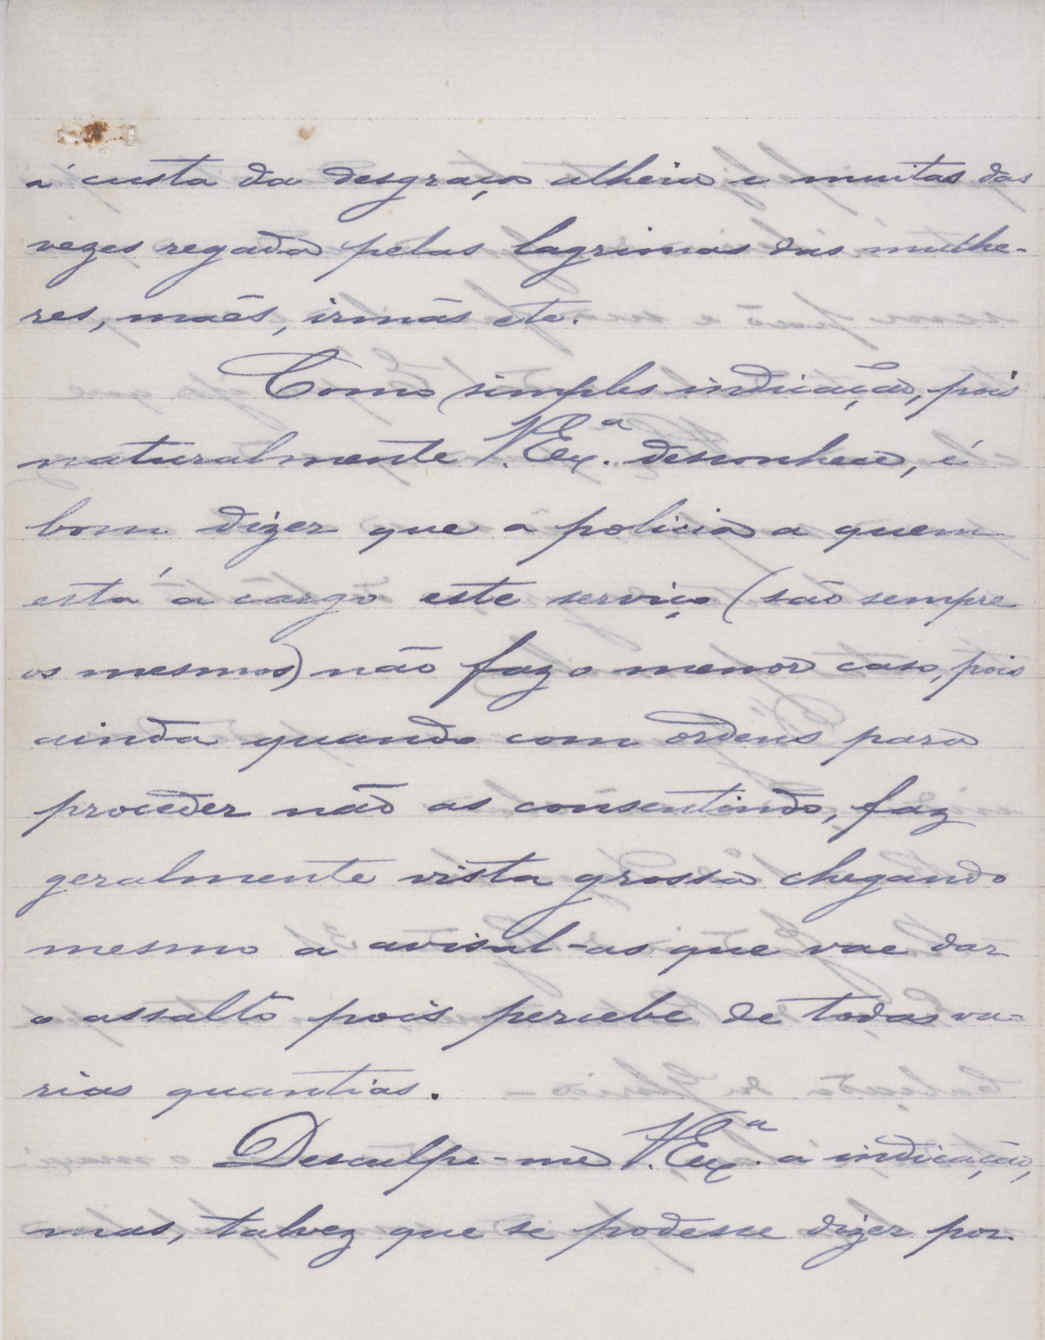 á custa da desgraça alheia e muitas das
vezes regada pelas lagrimas das mulhe-
res, maês, irmãs etc.
Como simples indicação, pois
naturalmente V. Exª. desconhece, é
bom dizer que a policia a quem
está á cargo este serviço (são sempre
os mesmos) não faz o menor caso, pois
ainda quando com ordens para
proceder não as consentindo, faz
geralmente vista grossa chegando
mesmo a avisal-as que vae dar
o assalto pois percebe de todas va-
rias quantias.
Desculpe-me V. Exª. a indicação,
mas, talvez que se podesse dizer por